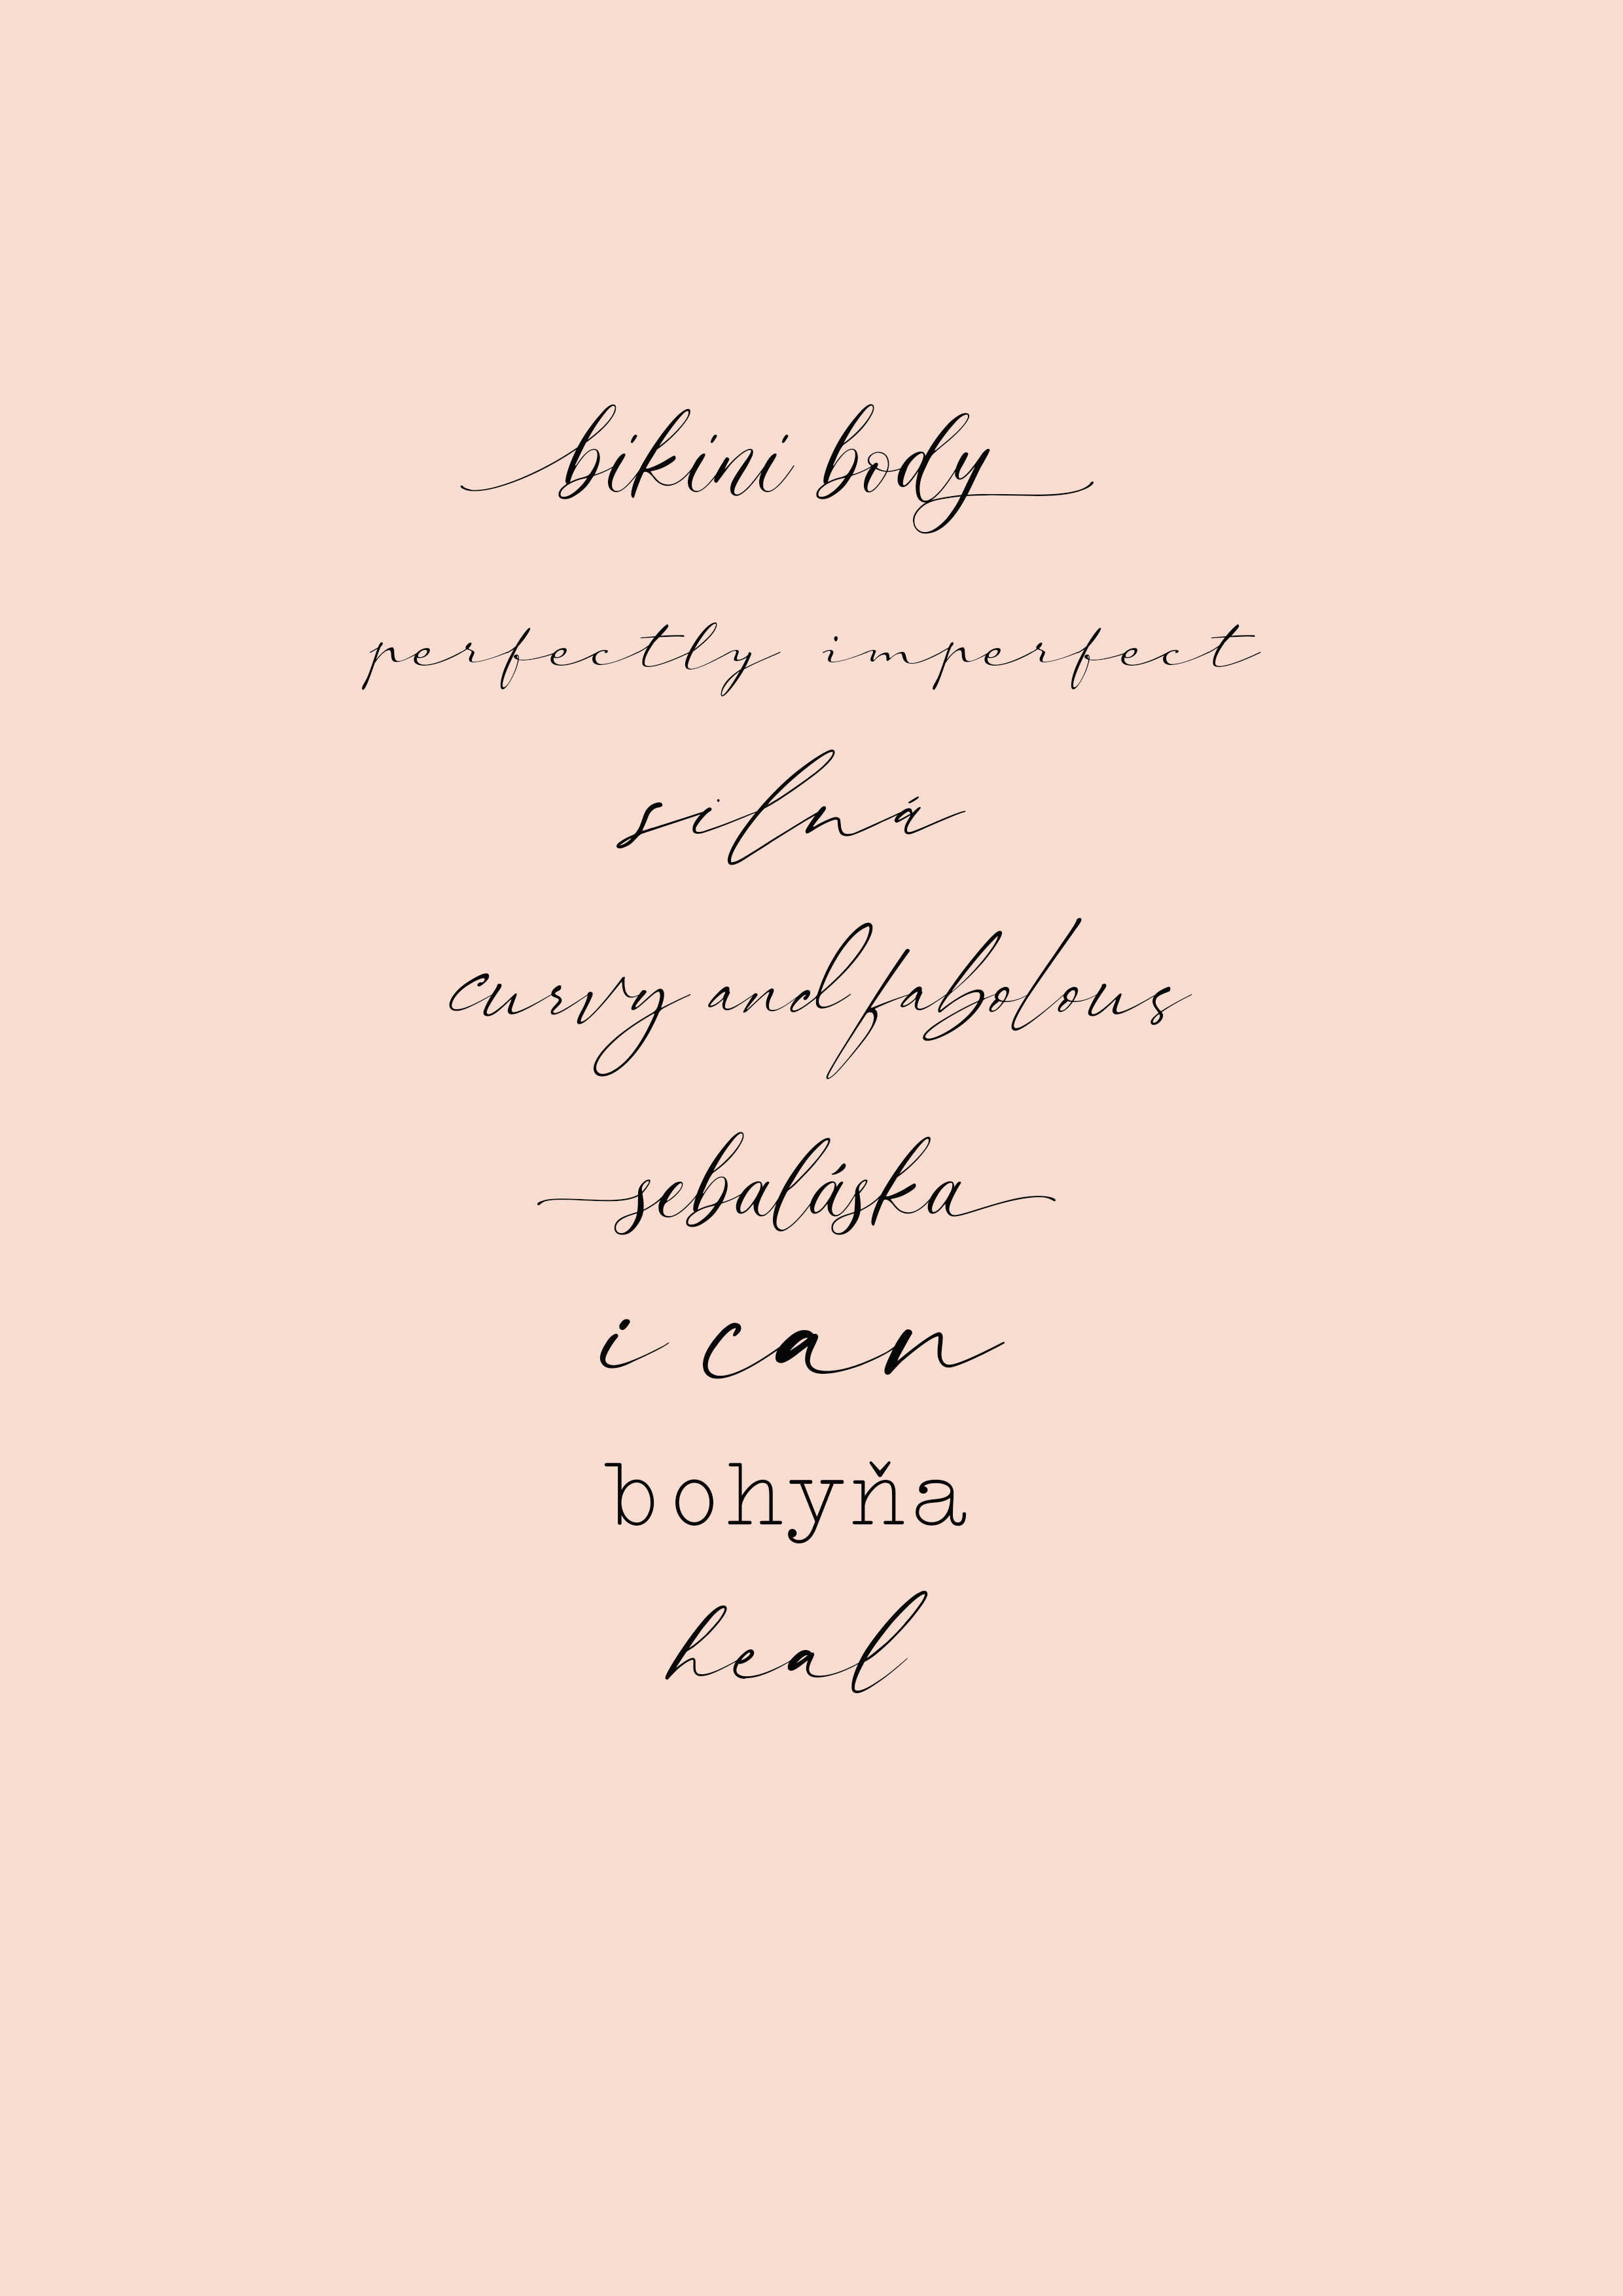 bikini body
perfectly imperfect
silná
curvy and fabolous
sebaláska
i can
bohyňa
heal